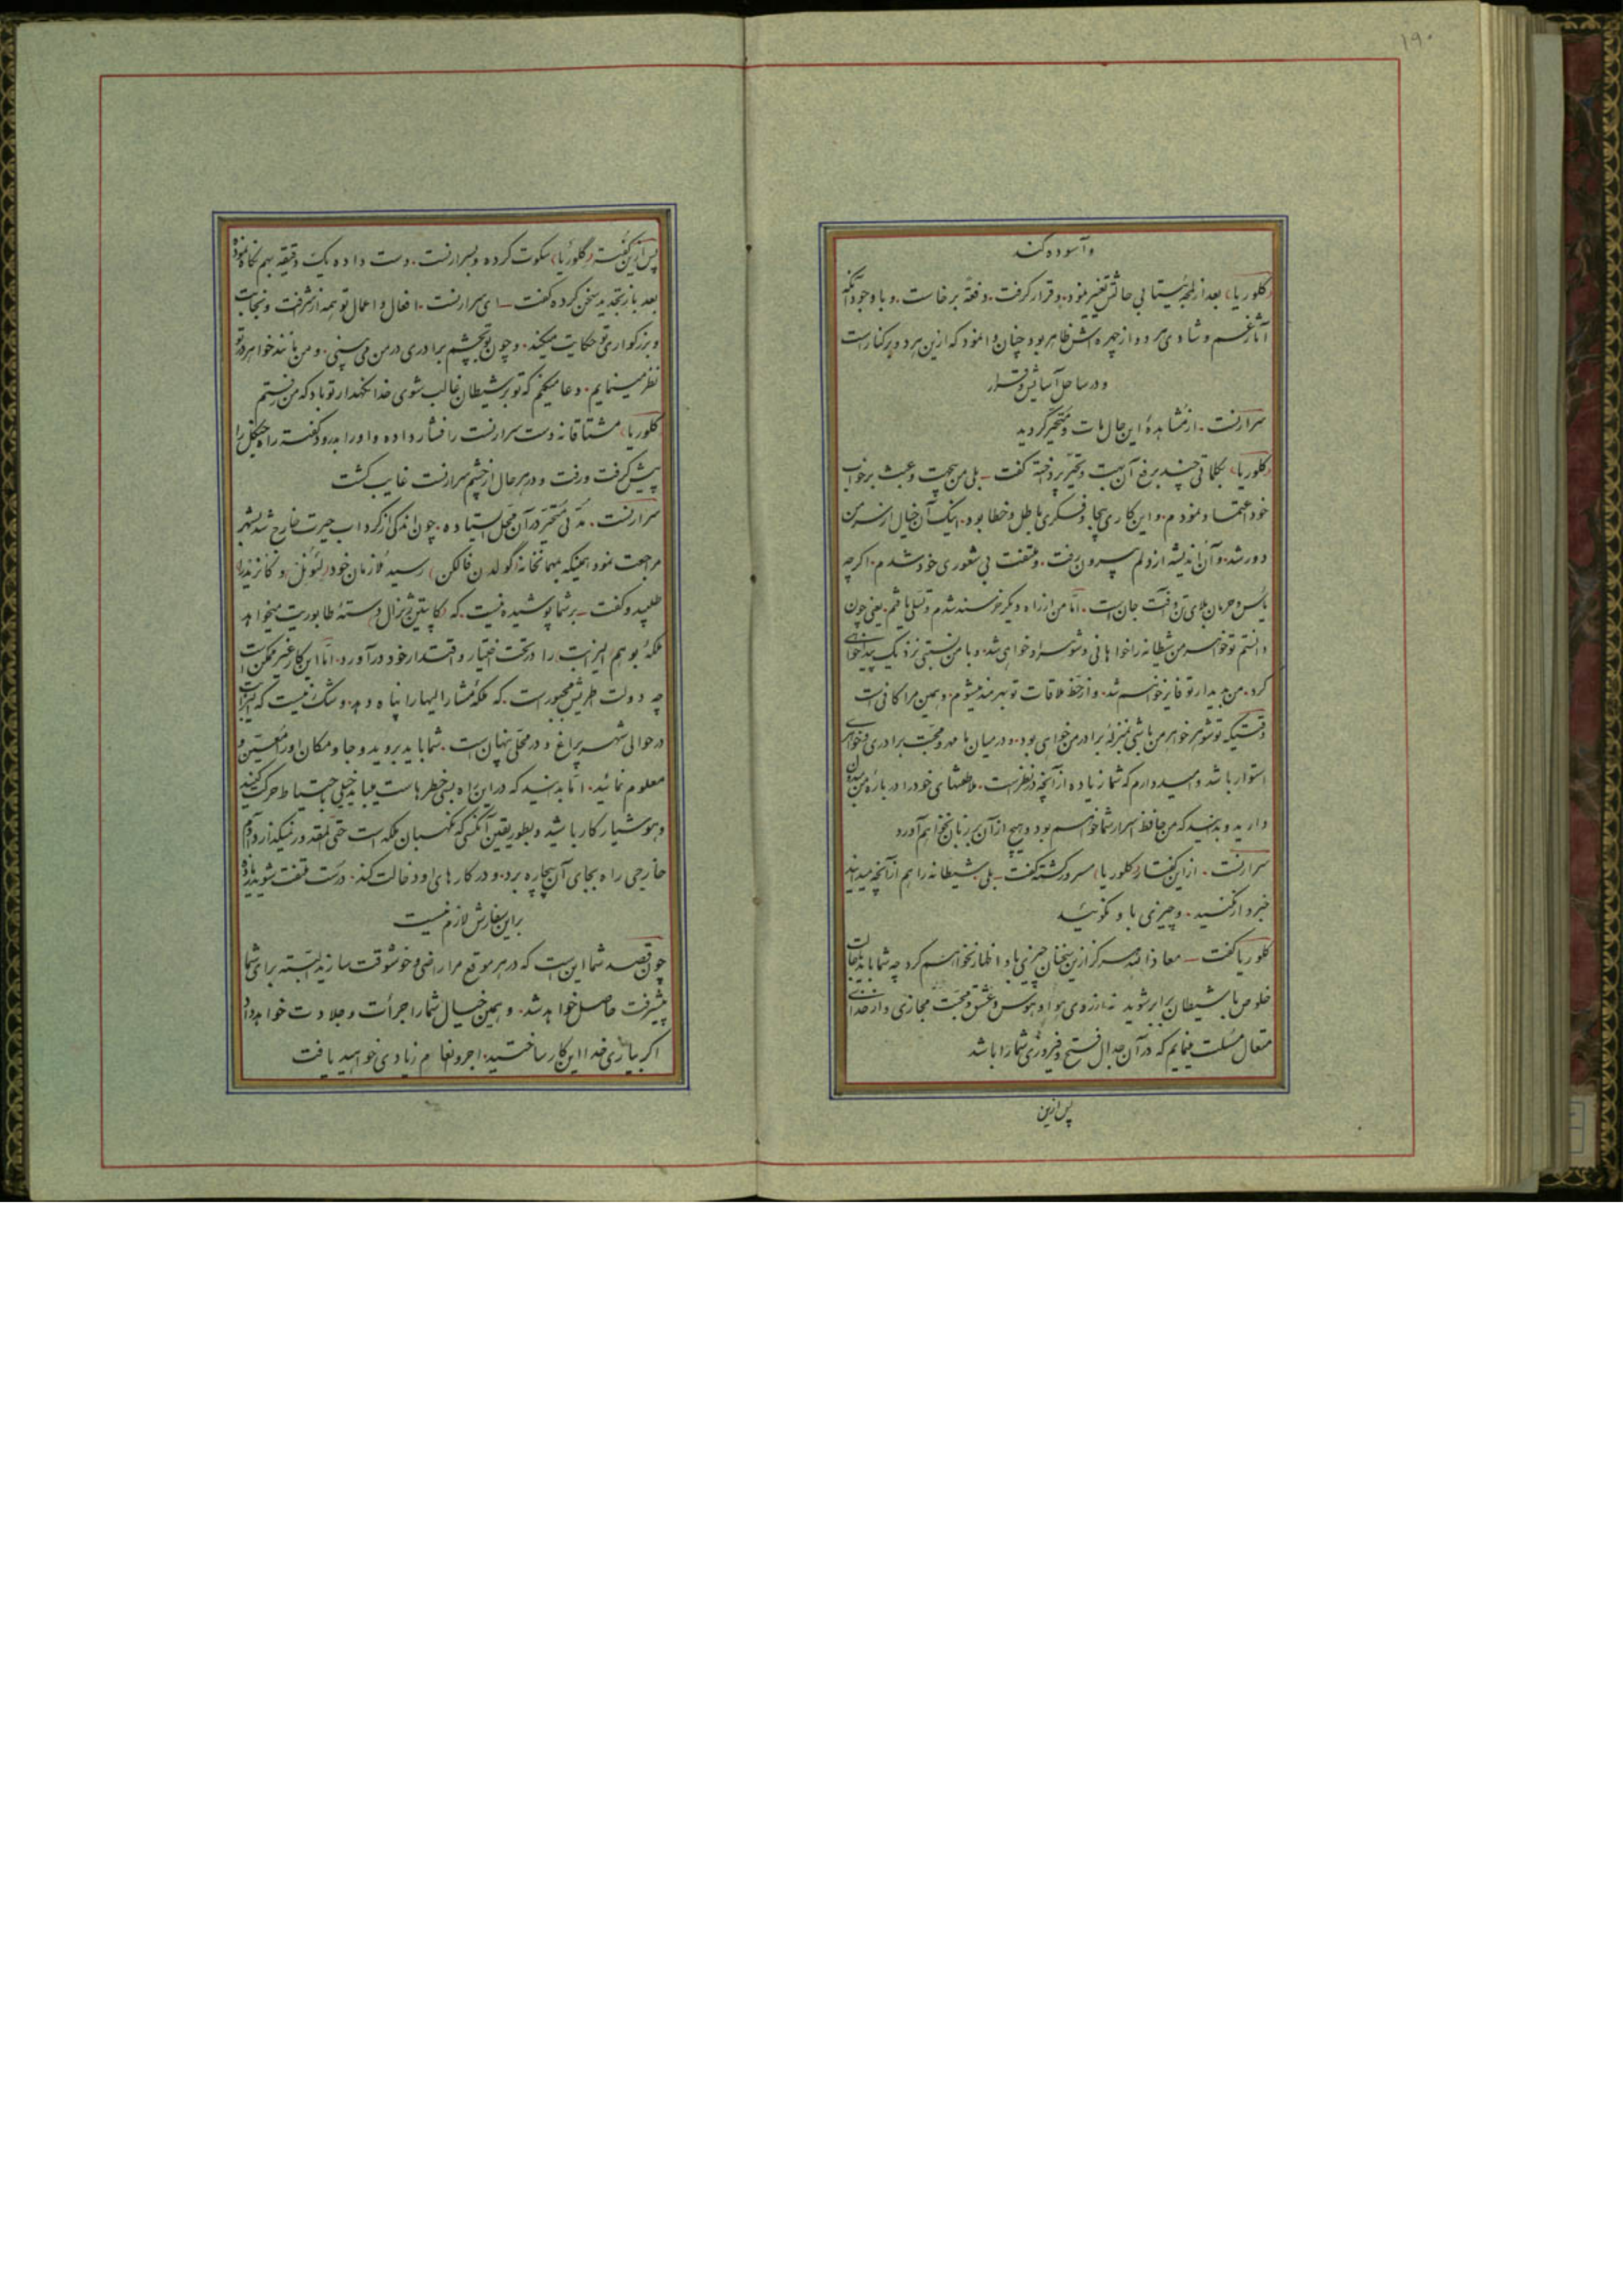 ۱۹۰
و آسوده کند
(کلوریا) بعد از لمحه بیتابی حالتش تغییر نمود. و قرار گرفت. دفعةً برخاست. و با وجود آنکه
آثار غم و شادی هر دو از چهره اش ظاهر بود چنان وانمود که ازین هر دو بر کنار است
و در ساحل آسایش و قرار
سرارنست. از مشاهدهٔ این حال مات و متحیر گردید
(کلوریا) بکلماتی چند برفع آن بهت و تحیر پرداخته گفت ـ بلی من بیجهت و عبث بر خواب
خود اعتماد نمودم. و این کاری بیجا و فکری باطل و خطا بود. اینک آن خیال از سر من
دور شد. و آن اندیشه از دلم بیرون رفت. و ملتفت بی شعوری خود شدم. اگرچه
یأس و حرمان بلای تن و آفت جان است. امّا من از راه دیگر خرسند شدم و تسلّی یافتم. یعنی چون
دانستم تو خواهر من شیطانه را خواهانی و شوهر او خواهی شد. و با من نسبتی نزدیک پیدا خواهی
کرد. من بدیدار تو فایز خواهم شد. و از حظ ملاقات تو بهره‌مند میشوم. و همین مرا کافی است
وقتیکه تو شوهر خواهر من باشی بمنزلهٔ برادر من خواهی بود. و در میان ما مهر و محبّت برادری خواهی
استوار باشد و امیدوارم که شما زیاده از آنچه در نظر است. ملاطفتهای خود را در بارهٔ من مبذول
دارید و بدانید که من حافظ اسرار شما خواهم بود و هیچ از آن بر زبان نخواهم آورد
سرارنست. از این گفتار (کلوریا) مسرور گشته گفت ـ بلی شیطانه را هم از آنچه میدانید
خبردار نکنید. و چیزی با او نگوئید
کلوریا گفت ـ معاذ الله هرگز ازین سخنان چیزی باو اظهار نخواهم کرد چه شما باید بجهات
خلوص با شیطان برابر شوید نه از روی هوا و هوس و عشق و محبّت مجازی و از خدای
متعال مسئلت مینمایم که در آن جدال فتح و فیروزی شما را باشد
پس ازین
پس ازین گفت (گلوریا) سکوت کرده و بسرارنست. دست داده یک دقیقه بهم نگاه نموده
بعد باز تجدید سخن کرده گفت ـ ای سرارنست. افعال و اعمال تو همه از شرافت و نجابت
و بزرگواری تو حکایت میکند. و چون تو بچشم برادری در من می بینی. و من مانند خواهر در تو
نظر مینمایم. و دعا میکنم که تو بر شیطان غالب شوی خدا نگهدار تو باد که من رفتم
کلوریا) مشتاقانه دست سرارنست را فشار داده و او را بدرود گفته راه جنگل را
پیش گرفت و رفت و در هر حال از چشم سرارنست غایب گشت
سرارنست. مدّتی متحیّر در آن محل ایستاده. چون اندکی از گرداب حیرت خارج شد بشهر
مراجعت نمود. همینکه بمهمانخانهٔ (گولدن فالکن) رسید ملازمان خود (لئونل) و کانرند را
طلبیده گفت ـ بر شما پوشیده نیست. که (کاپیتن ژنرال) دستهٔ طابوریت میخواهد
ملکهٔ بوهم الیزابت را در تحت اختیار و اقتدار خود در آورد. امّا این کار غیر ممکن است
چه دولت اطریش مجبور است. که ملکهٔ مشار الیها را پناه دهد. و شک نیست که الیزابت
در حوالی شهر پراغ و در محلّی پنهان است. شما باید بروید و جا و مکان او را معیّن و
معلوم نمائید. امّا بدانید که در این راه بعضی خطرهاست میباید خیلی با احتیاط حرکت کنید
و هوشیار کار باشید و بطور یقین آنکسی که نگهبان ملکه است حتّی المقدور نمیگذارد آدم
خارجی راه بجای آن بیچاره برد. و در کارهای او دخالت کند. درست ملتفت شوید
براین سفارش لازم نیست
چون قصد شما این است که در هر موقع مرا راضی و خوشوقت سازید البتّه برای شما
پیشرفت حاصل خواهد شد. و همین خیال شما را جرأت و جلادت خواهد داد
اگر بیاری خدا این کار ساختید. اجر و انعام زیادی خواهید یافت